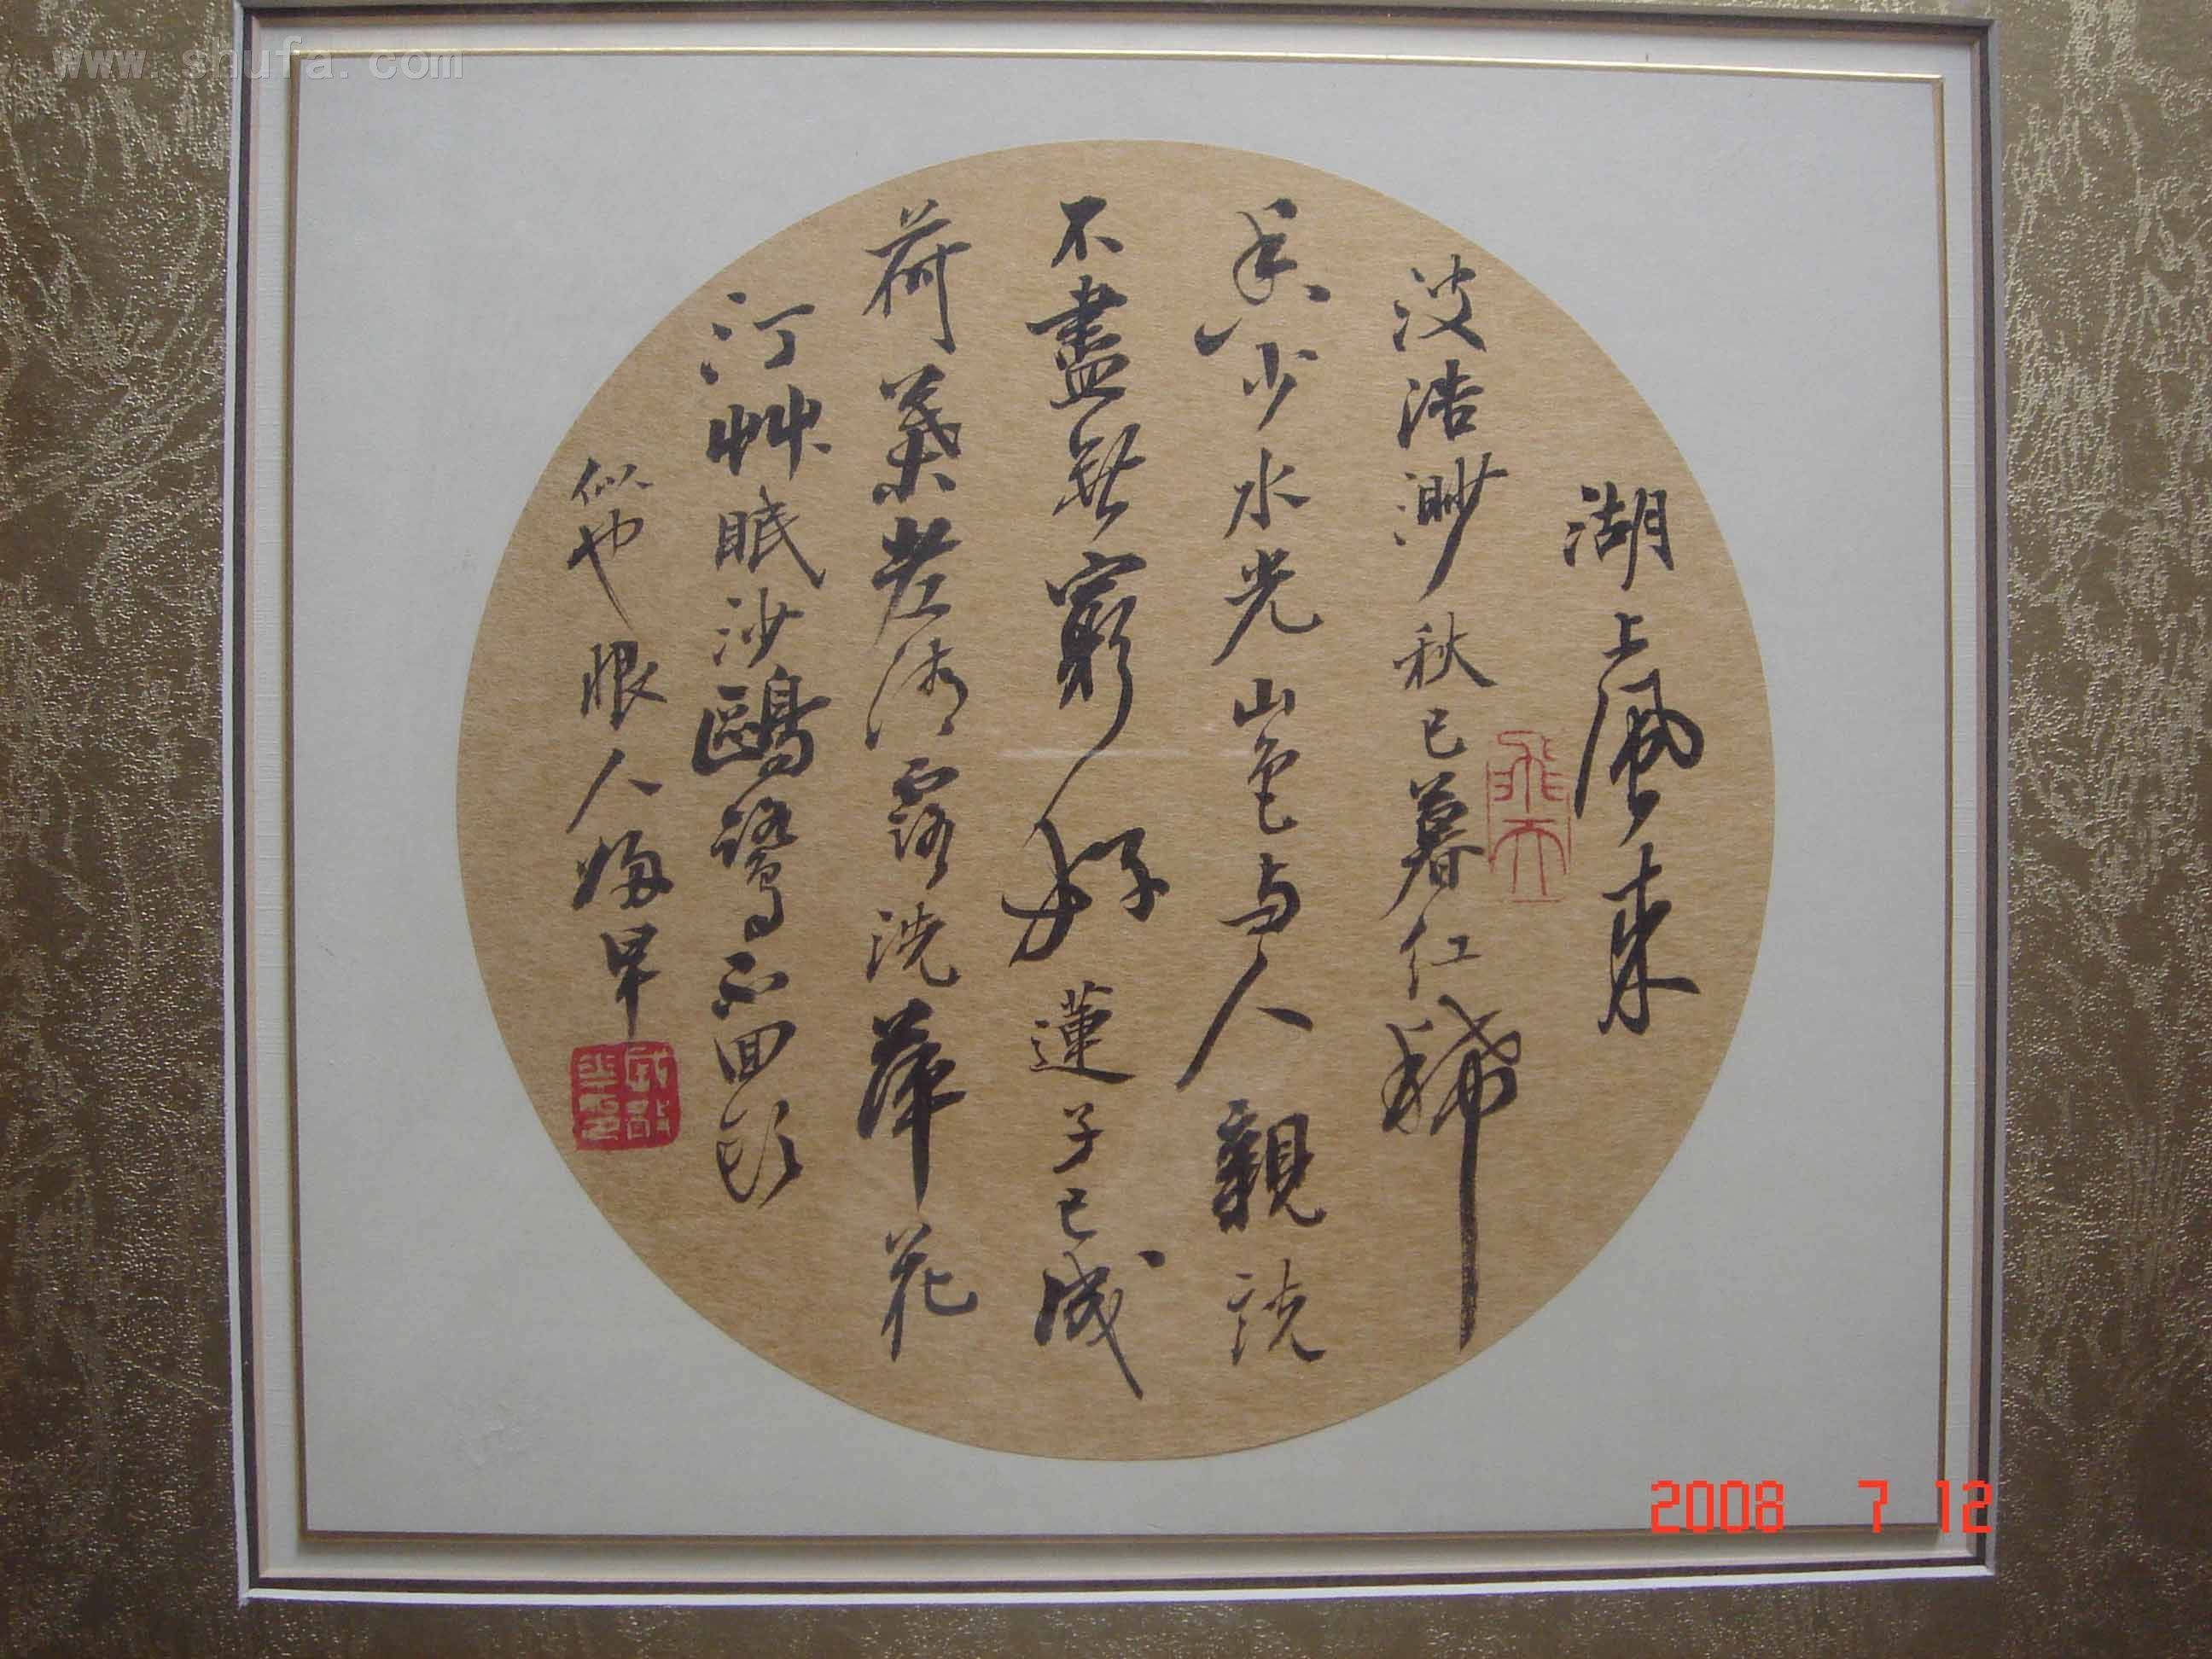 www.shufa.com
湖上風來
波浩渺秋已暮红稀
香少水光山色与人親説
不盡無窮好蓮子已成
荷葉老清露洗苹花
汀艸眠沙鷗鷺不回頭
似也恨人歸早
2008 7 12